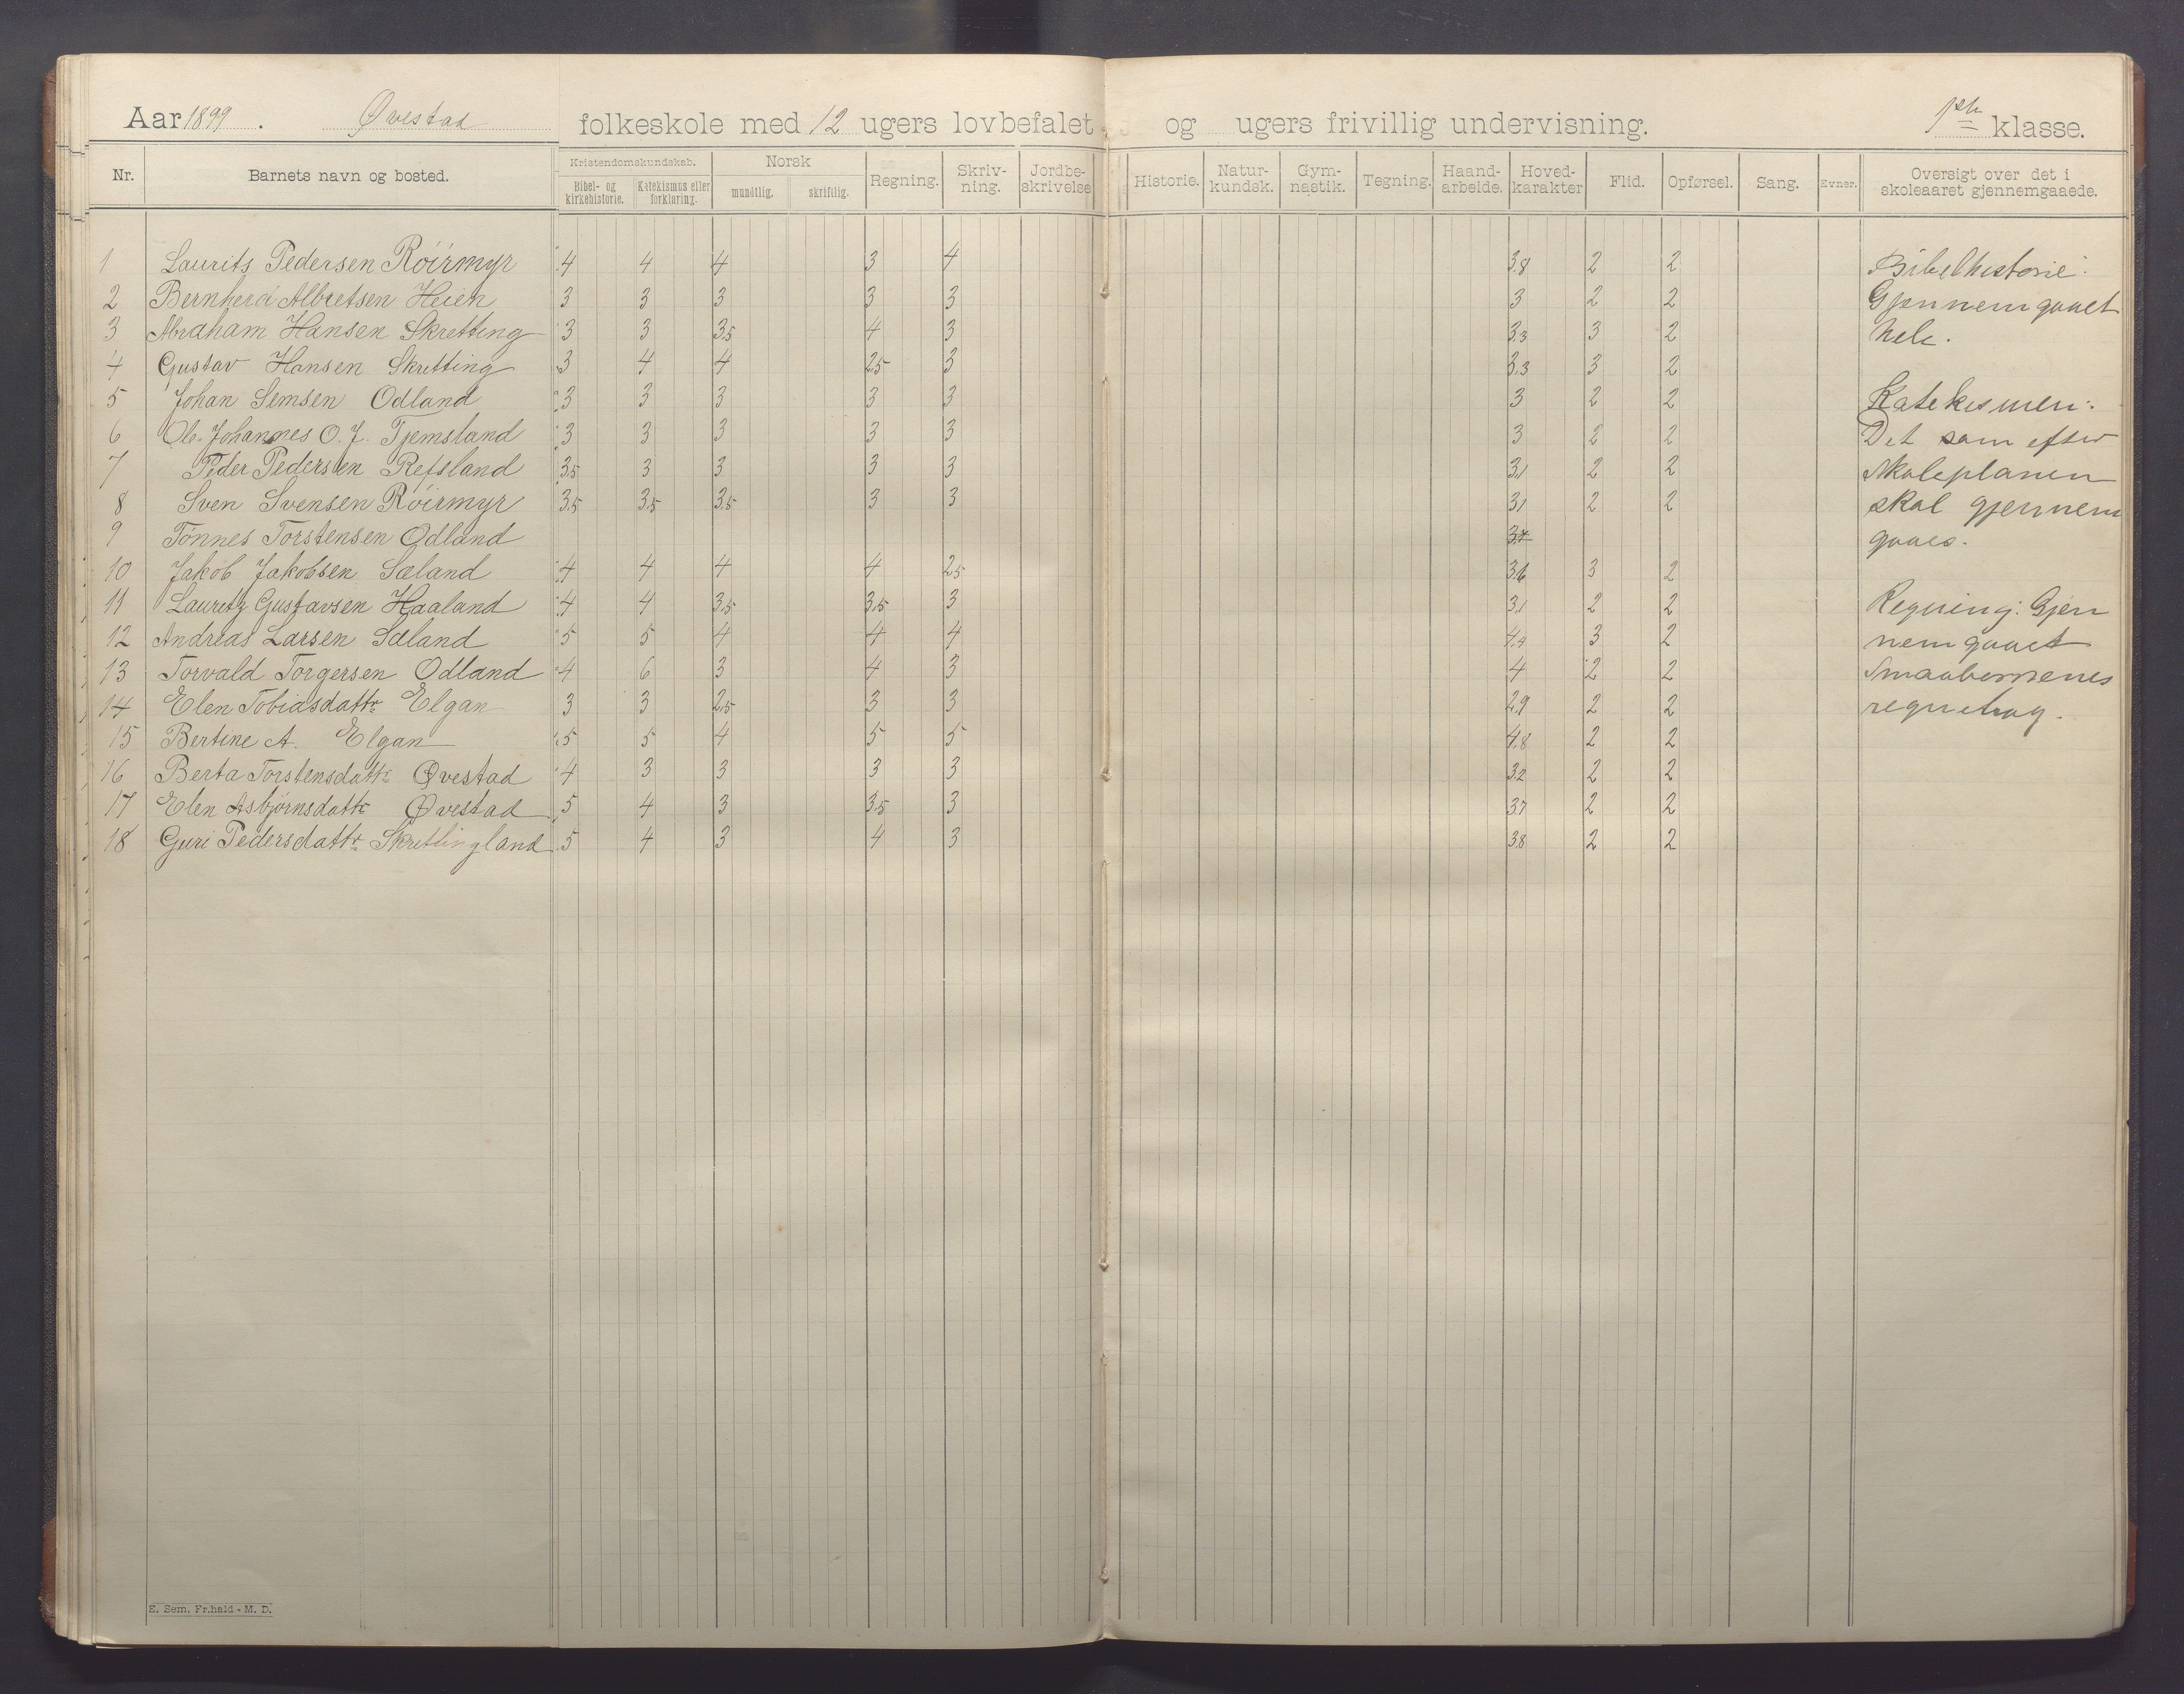 Aar 1899. Øvestad folkeskole med 12 ugers lovbefalet og ugers frivillig undervisning. 1ste klasse.
Nr. Barnets navn og bosted. Kristendomskundskab. Bibel- og kirkehistorie. Katekismus eller forklaring. Norsk mundtlig. skriftlig. Regning. Skriv-ning. Jordbe-skrivelse Historie. Natur-kundsk. Gym-nastik. Tegning. Haand-arbeide. Hoved-karakter Flid. Opførsel. Sang. Evner. Oversigt over det i skoleaaret gjennemgaaede.
1 Laurits Pedersen Röirmyr 4 4 4 3 4 3.8 2 2 Bibelhistorie:
2 Bernherd Albretsen Heien 3 3 3 3 3 3 2 2 Gjennemgaaet
3 Abraham Hansen Skretting 3 3 3,5 4 3 3.3 3 2 hele.
4 Gustav Hansen Skretting 3 4 4 2,5 3 3.3 3 2
5 Johan Semsen Odland 3 3 3 3 3 3 2 2 Katekismen:
6 Ole Johannes O. J. Tjemsland 3 3 3 3 3 3 2 2 Det som efter
7 Peder Pedersen Refsland 3,5 3 3 3 3 3,1 2 2 Skoleplanen
8 Sven Svensen Röirmyr 3,5 3,5 3,5 3 3 3,1 2 2 skal gjennem
9 Tönnes Torstensen Odland gaaes.
10 Jakob Jakobsen Sæland 4 4 4 4 2,5 3,6 3 2
11 Lauretz Gustavsen Haaland 4 4 3,5 3,5 3 3,1 2 2 Regning: Gjen
12 Andreas Larsen Sæland 5 5 4 4 4 4,4 3 2 nemgaaet
13 Torvald Torgersen Odland 4 6 3 4 3 4 2 2 Smaabørnenes
14 Elen Tobiasdattr Elgan 3 3 2,5 3 3 2,9 2 2 regnebog.
15 Bertine A. Elgan 5 5 4 5 5 4,8 2 2
16 Berta Torstensdattr Øvestad 4 3 3 3 3 3,2 2 2
17 Elen Asbjörnsdattr Øvestad 5 4 3 3,5 3 3,7 2 2
18 Guri Pedersdattr Skretlingland 5 4 3 4 3 3,8 2 2
E. Sem, Fr.hald - M. D.